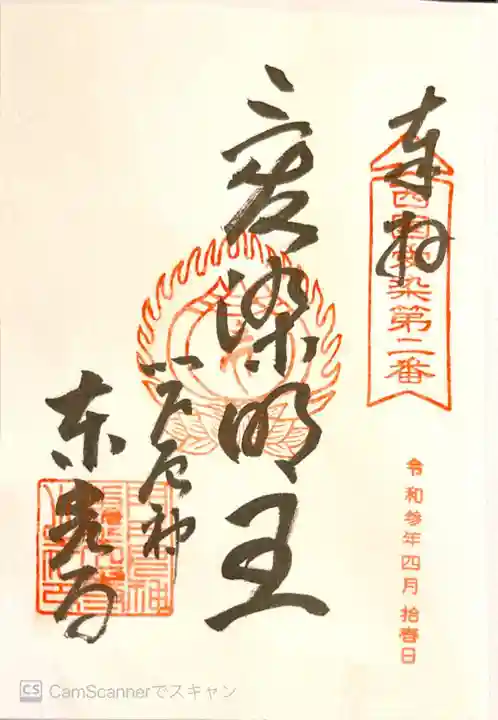 奉拝
西国愛染第二番
令和参年四月拾春日
愛染明王
一文厄神
東光寺
CS CamScannerでスキャン